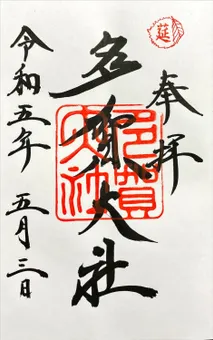 奉拝
多賀大社
多賀大社
令和五年 五月三日
莚